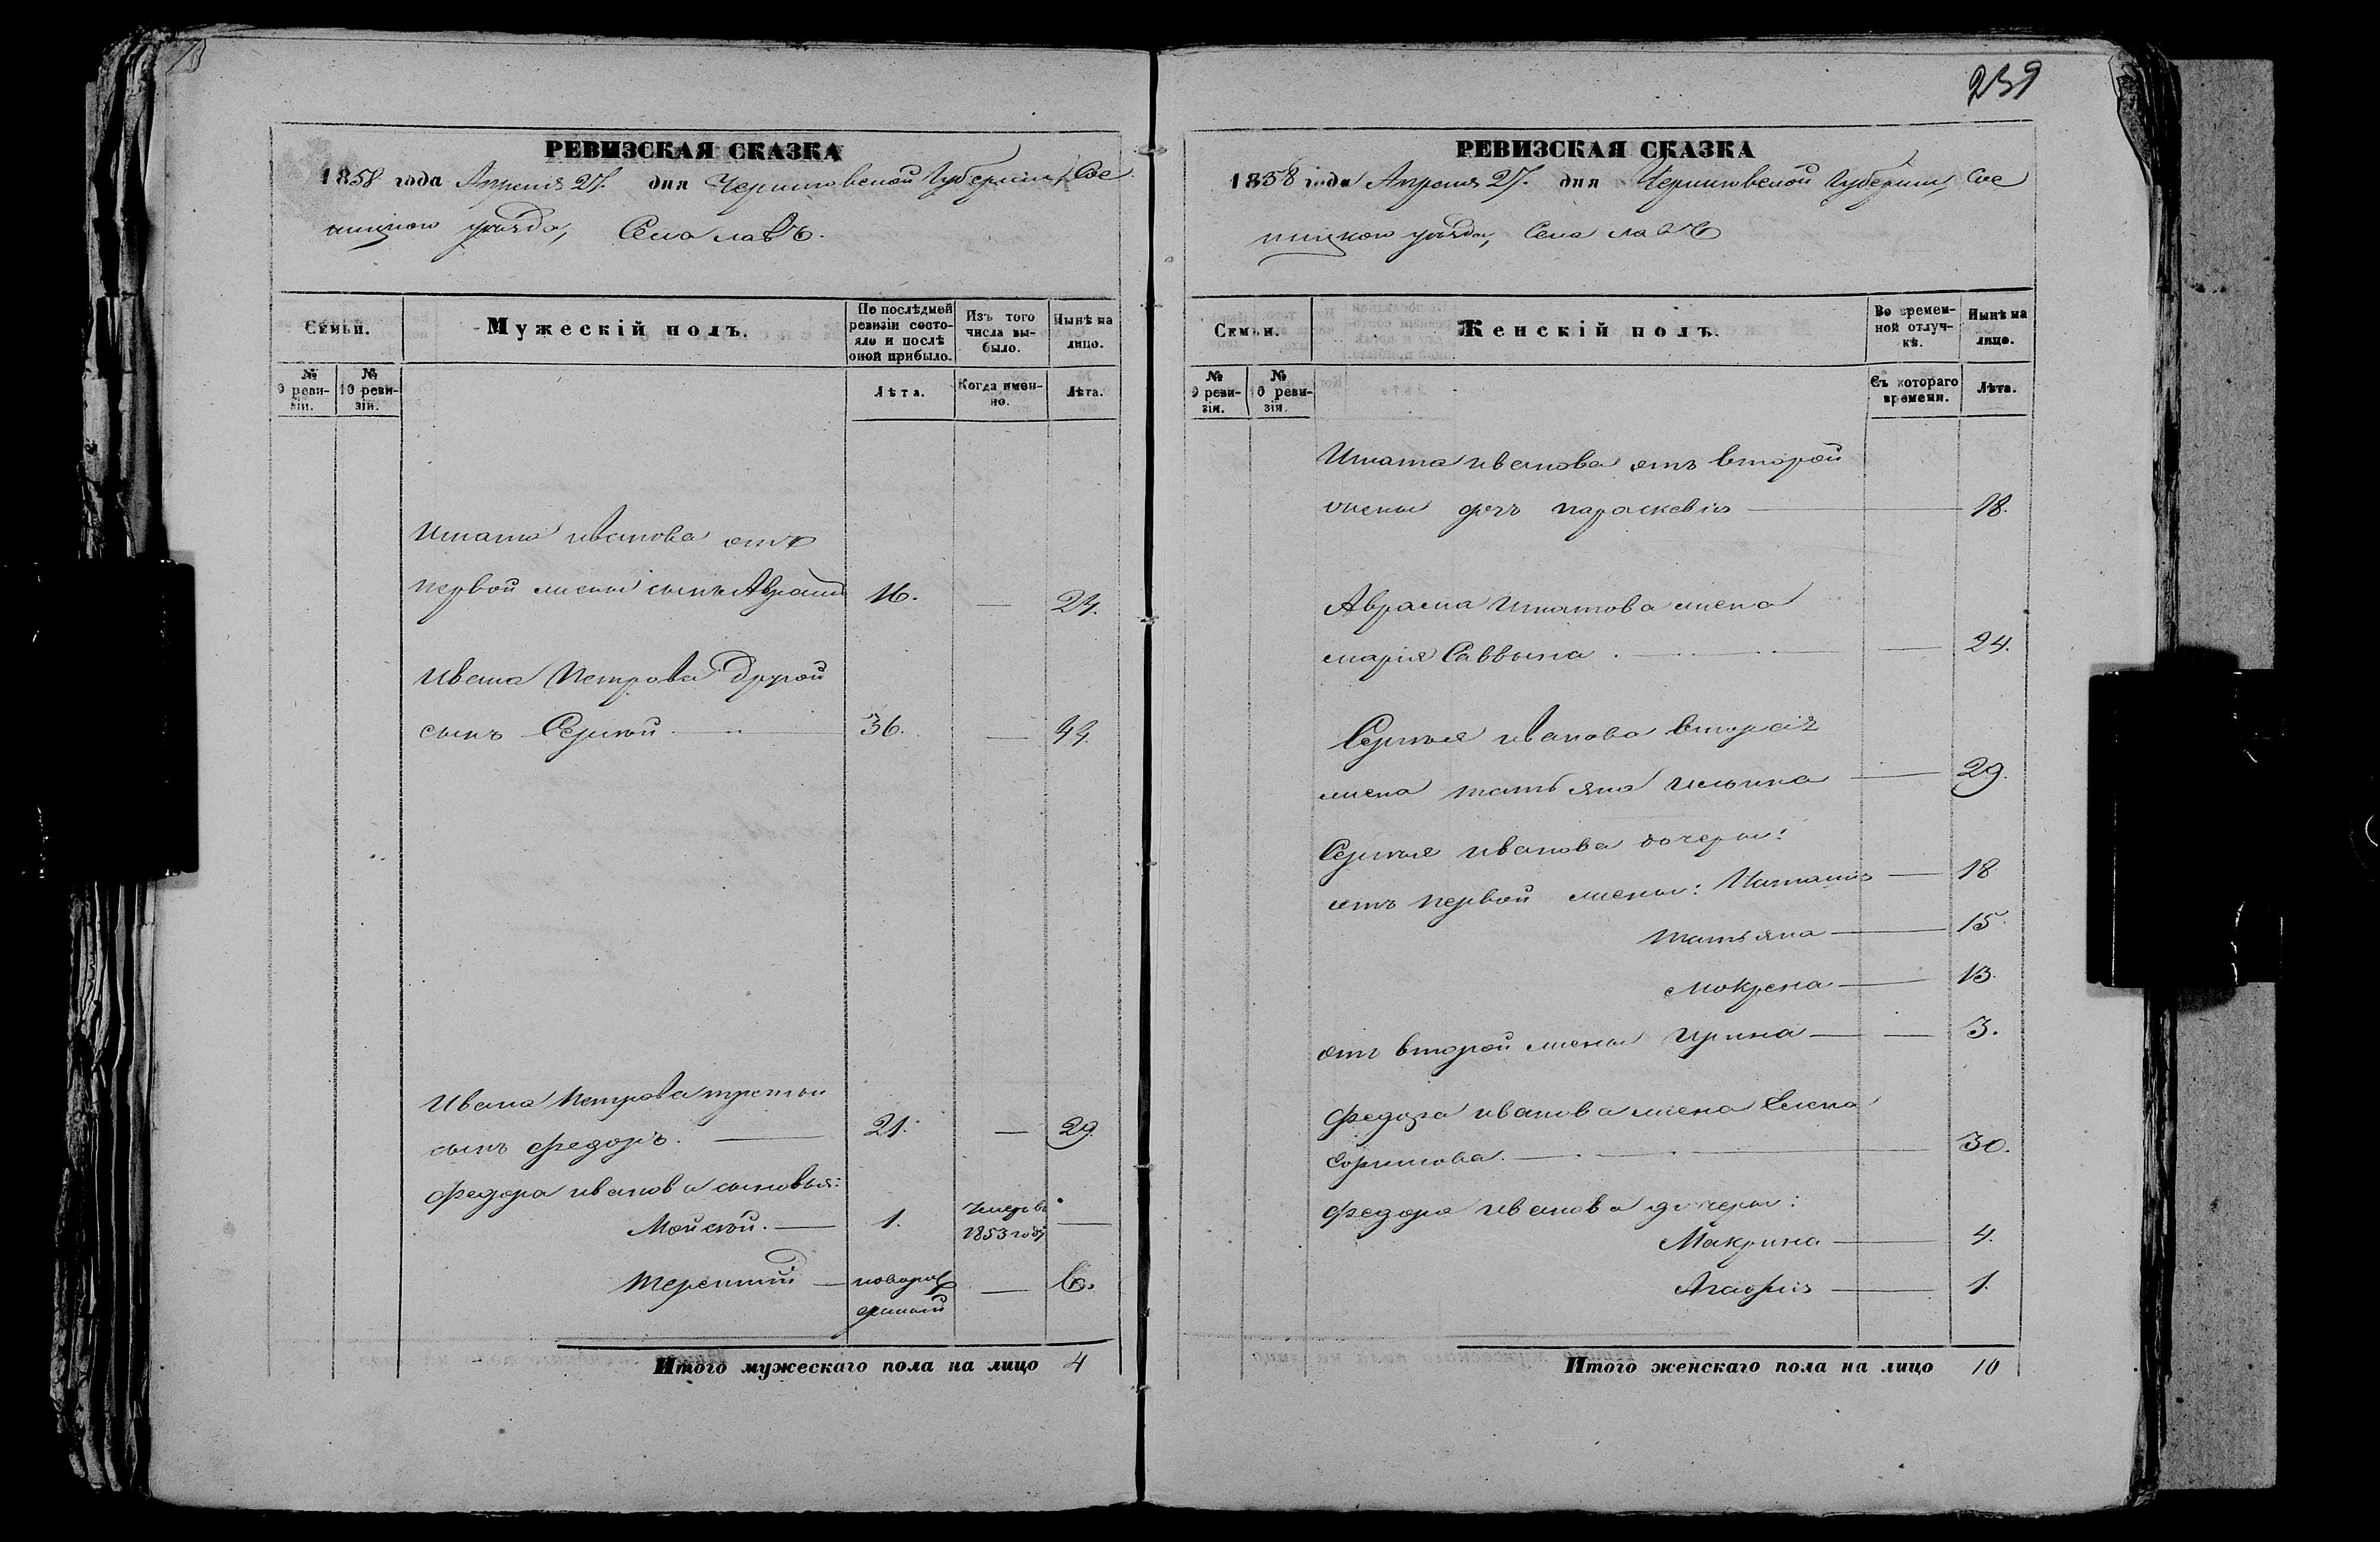 239
РЕВИЗСКАЯ СКАЗКА
1858 года Апреля 27. дня Черниговской Губерніи, Сос
ницкого уезда, Села лавъ.
Семьи.
Мужескій полъ.
По послѣдней ревизіи состояло и послѣ оной прибыло.
Изъ того числа выбыло.
Нынѣ на лицо.
№ 9 ревизіи.
№ 10 ревизіи.
Лѣта.
Когда именно.
Лѣта.
Игната иванова отъ
первой жены сынъ Аврамъ 16. — 24.
Ивана Петрова Другой
сынъ Сергѣй. — 36. — 44.
Ивана Петрова третьи
сынъ федоръ. — 21. — 29.
федора иванова сыновья:
Мойсѣй. — 1. Умеръ въ 1853 году —
Терентий — новорожденный — 6.
Итого мужескаго пола на лицо 4
РЕВИЗСКАЯ СКАЗКА
1858 года Апреля 27. дня Черниговской Губерніи, Сос
ницкого уезда, Села лавъ
Семьи.
Женскій полъ.
Во временной отлучкѣ.
Нынѣ на лицо.
№ 9 ревизіи.
№ 10 ревизія.
Съ котораго времени.
Лѣта.
Игната иванова отъ второй
жены дочъ параскевія — 18.
Аврама Игнатова жена
марія Саввина. — 24.
Сергѣя иванова вторая
жена татьяна ильина — 29.
Сергѣя иванова дочери:
отъ первой жены: Наталия — 18
татьяна — 15.
мокрена — 13.
отъ второй жены Ирина — 3.
федора иванова жена Елена
— 30.
федора иванова дочери:
Макрина — 4.
Агафія — 1.
Итого женскаго пола на лицо 10